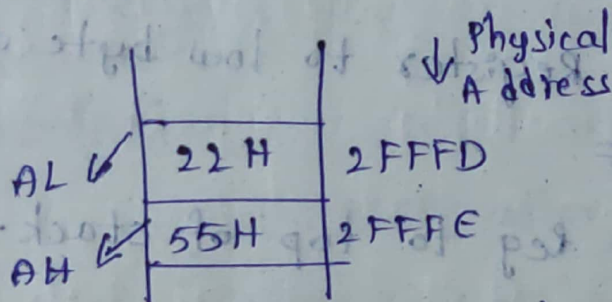 ↓ Physical
Address
AL ↙ 22H 2FFFD
AH ↙ 55H 2FFFE